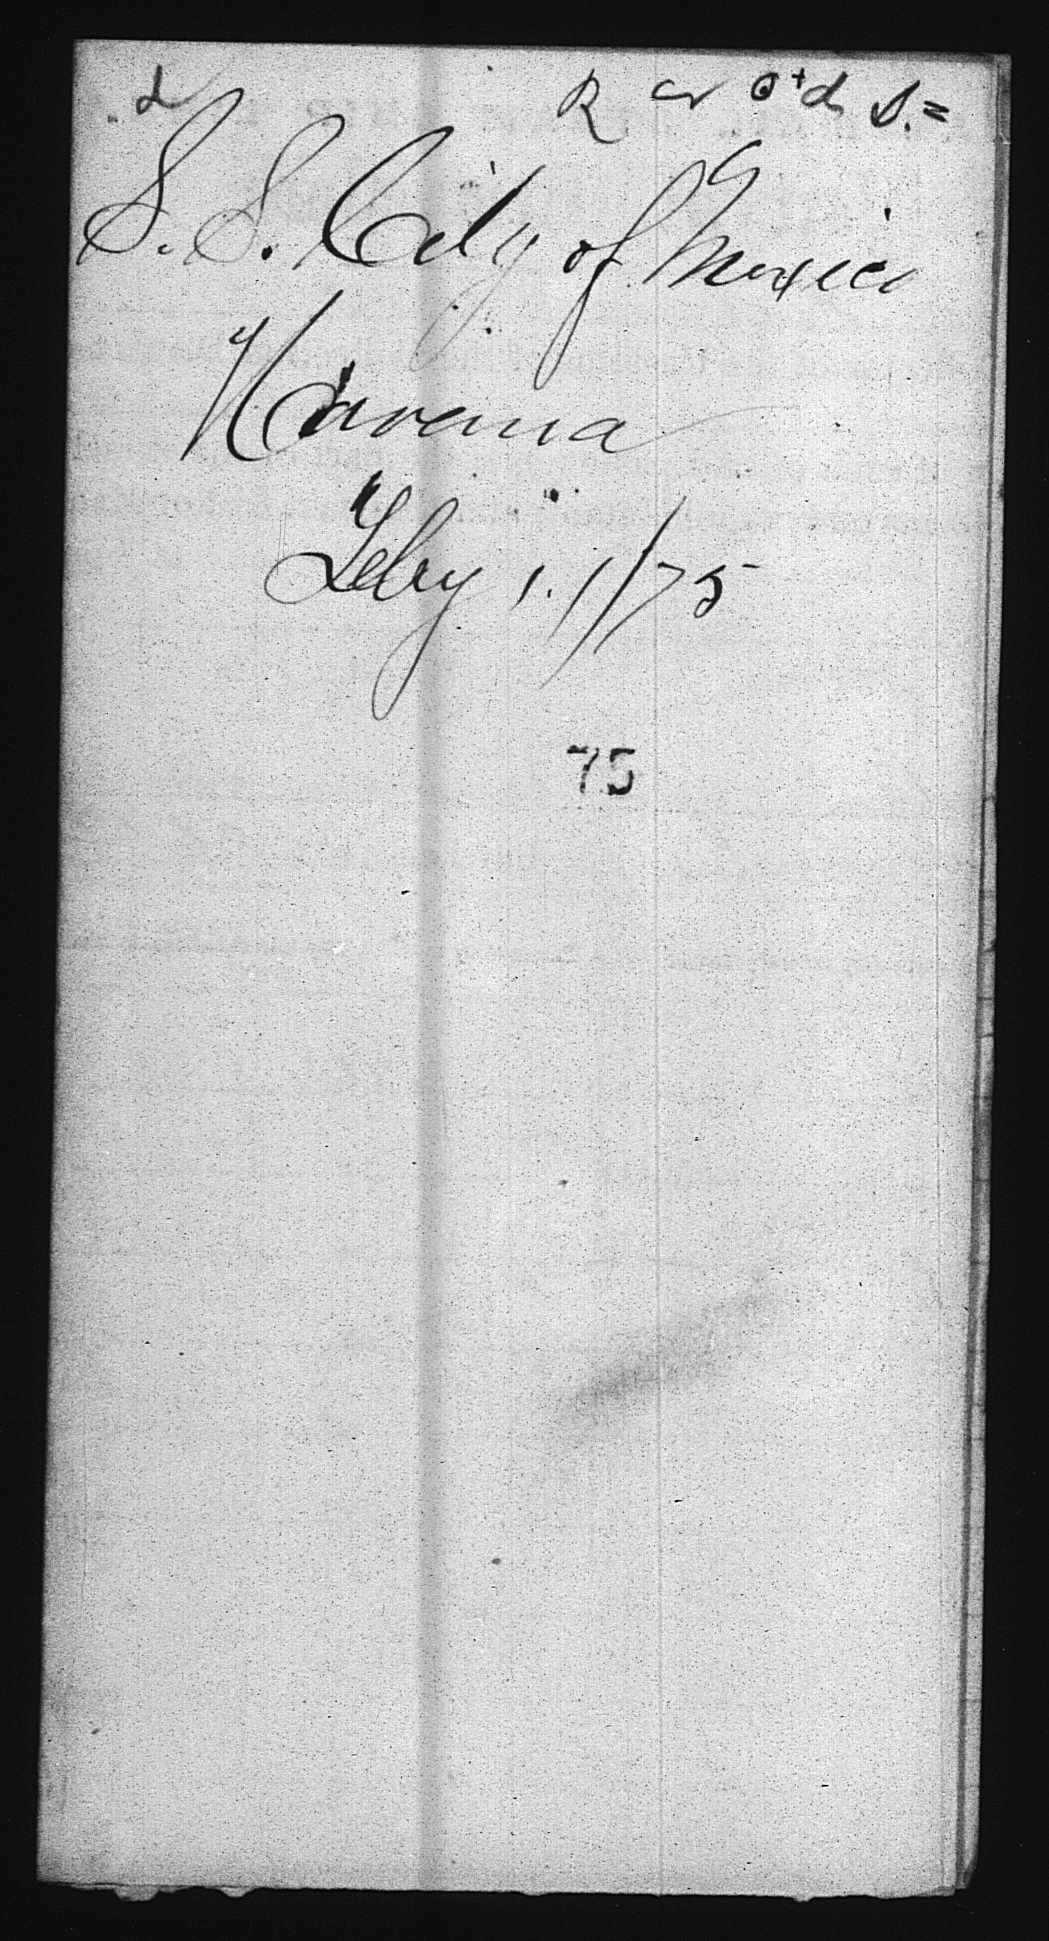 S. S. City of Mexico
Havana
Feby 1. 1/75
75